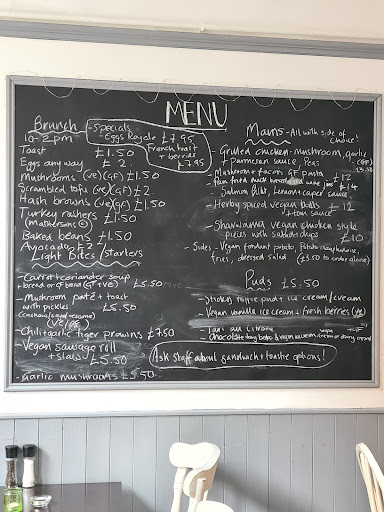 MENU
Brunch
10-2pm
Toast £1.50
Eggs any way £2
Mushrooms (ve)(GF) £1.50
Scrambled tofu (ve)(GF) £2
Hash browns (ve)(GF) £1.50
Turkey rashers £1.50
Baked beans £1.50
Avocado £2
Light Bites/Starters
-Specials
-Eggs Royale £7.95
French toast
+ berries
£7.95
-Carrot + coriander soup
+ bread or GF bread (GF+VE) £5.50
-Mushroom paté + toast
with pickles £5.50
(VE/GF)
-Chilli + garlic tiger prawns £7.50
-Vegan sausage roll
+ slaw £5.50
-Garlic mushrooms £5.50
Mains-All with side of
choice!
-Grilled chicken-mushroom, garlic
+ parmesan sauce, Peas (GF)
-Mushroom + GF pasta £12
duck wine jus £14
-Salmon fillet, Lemon + caper sauce
-Herby spiced vegan balls - £12
+ tom sauce
-Shawarma vegan chicken style
pieces with salad + dips £10
-Sides - Vegan fondant potato,
fries, dressed salad (£3.50 to order alone)
Puds £5.50
-Sticky toffee pud + ice cream/cream
-Vegan vanilla ice cream + fresh berries (ve)
-Chocolate
Ask staff about sandwich + toastie options!